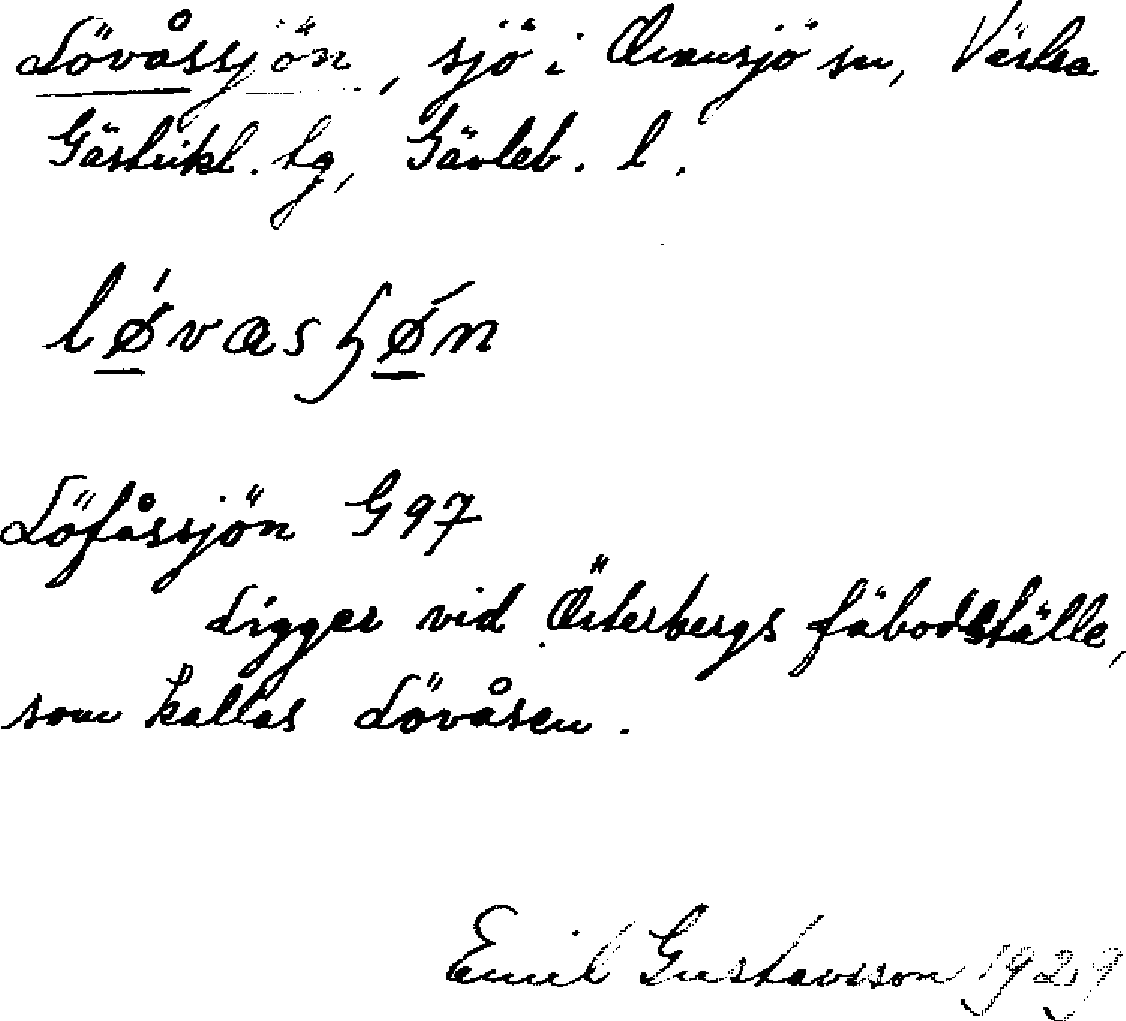 Lövåssjön, sjö i Ovansjö sn, Västra
Gästrikl. tg, Gävleb. l.
Löfåssjön G 97
Ligger vid Österbergs fäbodställe,
som kallas Lövåsen.
Emil Gustavsson 1929